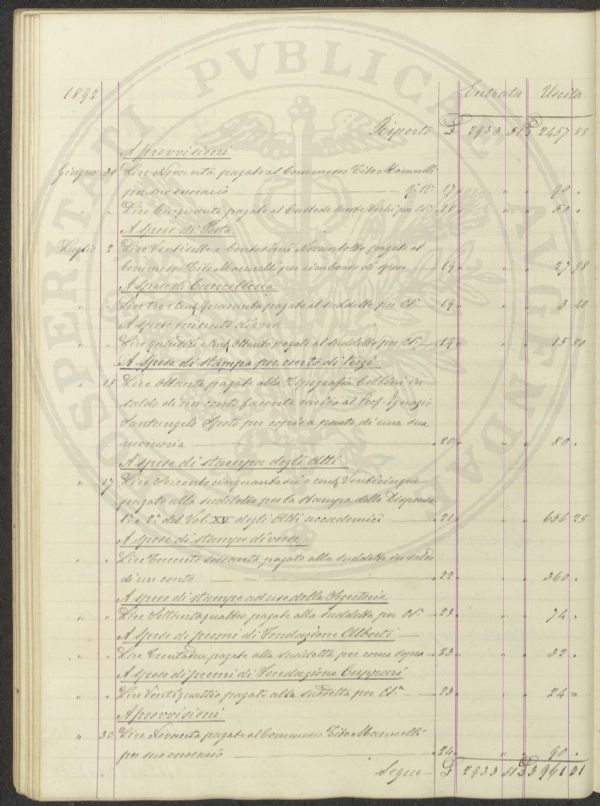 PROSPERITATI PVBLICAE AVGENDAE
1892 Entrata Uscita
Riporto £ 2933 51 £ 2457 83
A provvisioni
Giugno 30 Lire Novanta pagate al Commesso Tito Marucelli
per suo onorario 17 " " 90 "
" " Lire Cinquanta pagate al Custode per Cto 18 " " 50 "
A spese di Posta
Luglio 2 Lire Ventisette e Centesimi Novantotto pagate al
Commesso Tito Marucelli per rimborso di spese 19 " " 27 98
A spese di Cancelleria
" " Lire tre e Cent quaranta pagate al suddetto per Cto 19 " " 3 40
A spese minute diverse
" " Lire quindici e Cent Ottanta pagate al suddetto per Cto 19 " " 15 80
A Spese di stampa per conto di terzi
" 15 Lire Ottanta pagate alla Tipografia Cellini in
saldo di un conto facente carico al Prof. Ignazio
Santangelo Spoto per copie a parte di una sua
memoria 20 " " 80 "
A spese di stampa degli Atti
" 17 Lire Seicentocinquantasei e cent Venticinque
pagate alla suddetta per la stampa delle Dispense
1a e 2a del Vol. XV degli Atti accademici 21 " " 656 25
A spese di stampe diverse
" " Lire Trecento sessanta pagate alla suddetta in saldo
di un conto 22 " " 360 "
A spese di stampe ad uso della Segreteria
" " Lire Settantaquattro pagate alla suddetta per Cto 23 " " 74 "
A Spese di premi di Fondazione Alberti
" " Lire Trentadue pagate alla suddetta per come sopra 23 " " 32 "
A spese di premi di Fondazione Cuppari
" " Lire Ventiquattro pagate alla suddetta per Cto 23 " " 24 "
A provvisioni
" 30 Lire Novanta pagate al Commesso Tito Marucelli
per suo onorario 24 " " 90 "
Segue £ 2933 51 £ 3961 01